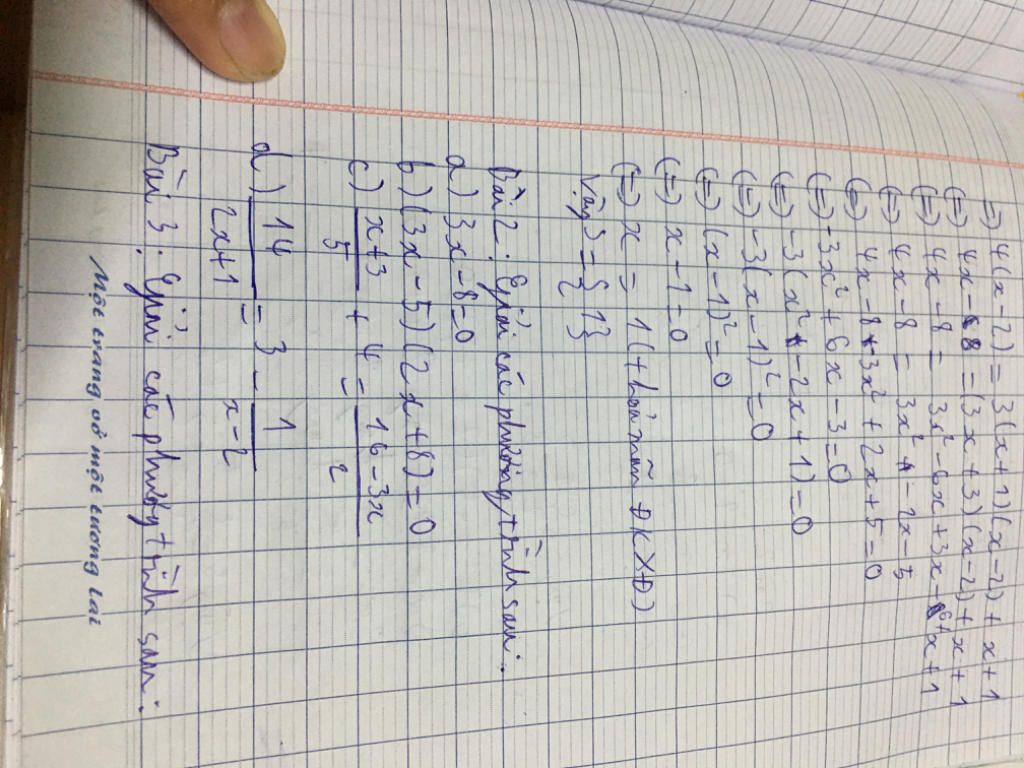 =) 4(x-2) = 3(x+1)(x-2) + x+1
(=) 4x-8 = (3x+3)(x-2) + x+1
(=) 4x-8 = 3x²-6x+3x-6+x+1
(=) 4x-8 = 3x²-2x-5
(=) 4x-8-3x²+2x+5=0
(=) -3x²+6x-3=0
(=) -3(x²-2x+1)=0
(=) -3(x-1)²=0
(=) (x-1)²=0
(=) x-1=0
(=) x = 1 (thoả mãn ĐKXĐ)
Vậy S = {1}
Bài 2: Giải các phương trình sau:
a) 3x-8=0
b) (3x-5)(2x+8)=0
c) x+3/5 + 4 = 16-3x/2
d) 14/2x+1 = 3 - 1/x-2
Bài 3: Giải các phương trình sau:
Một trang vở một tương lai